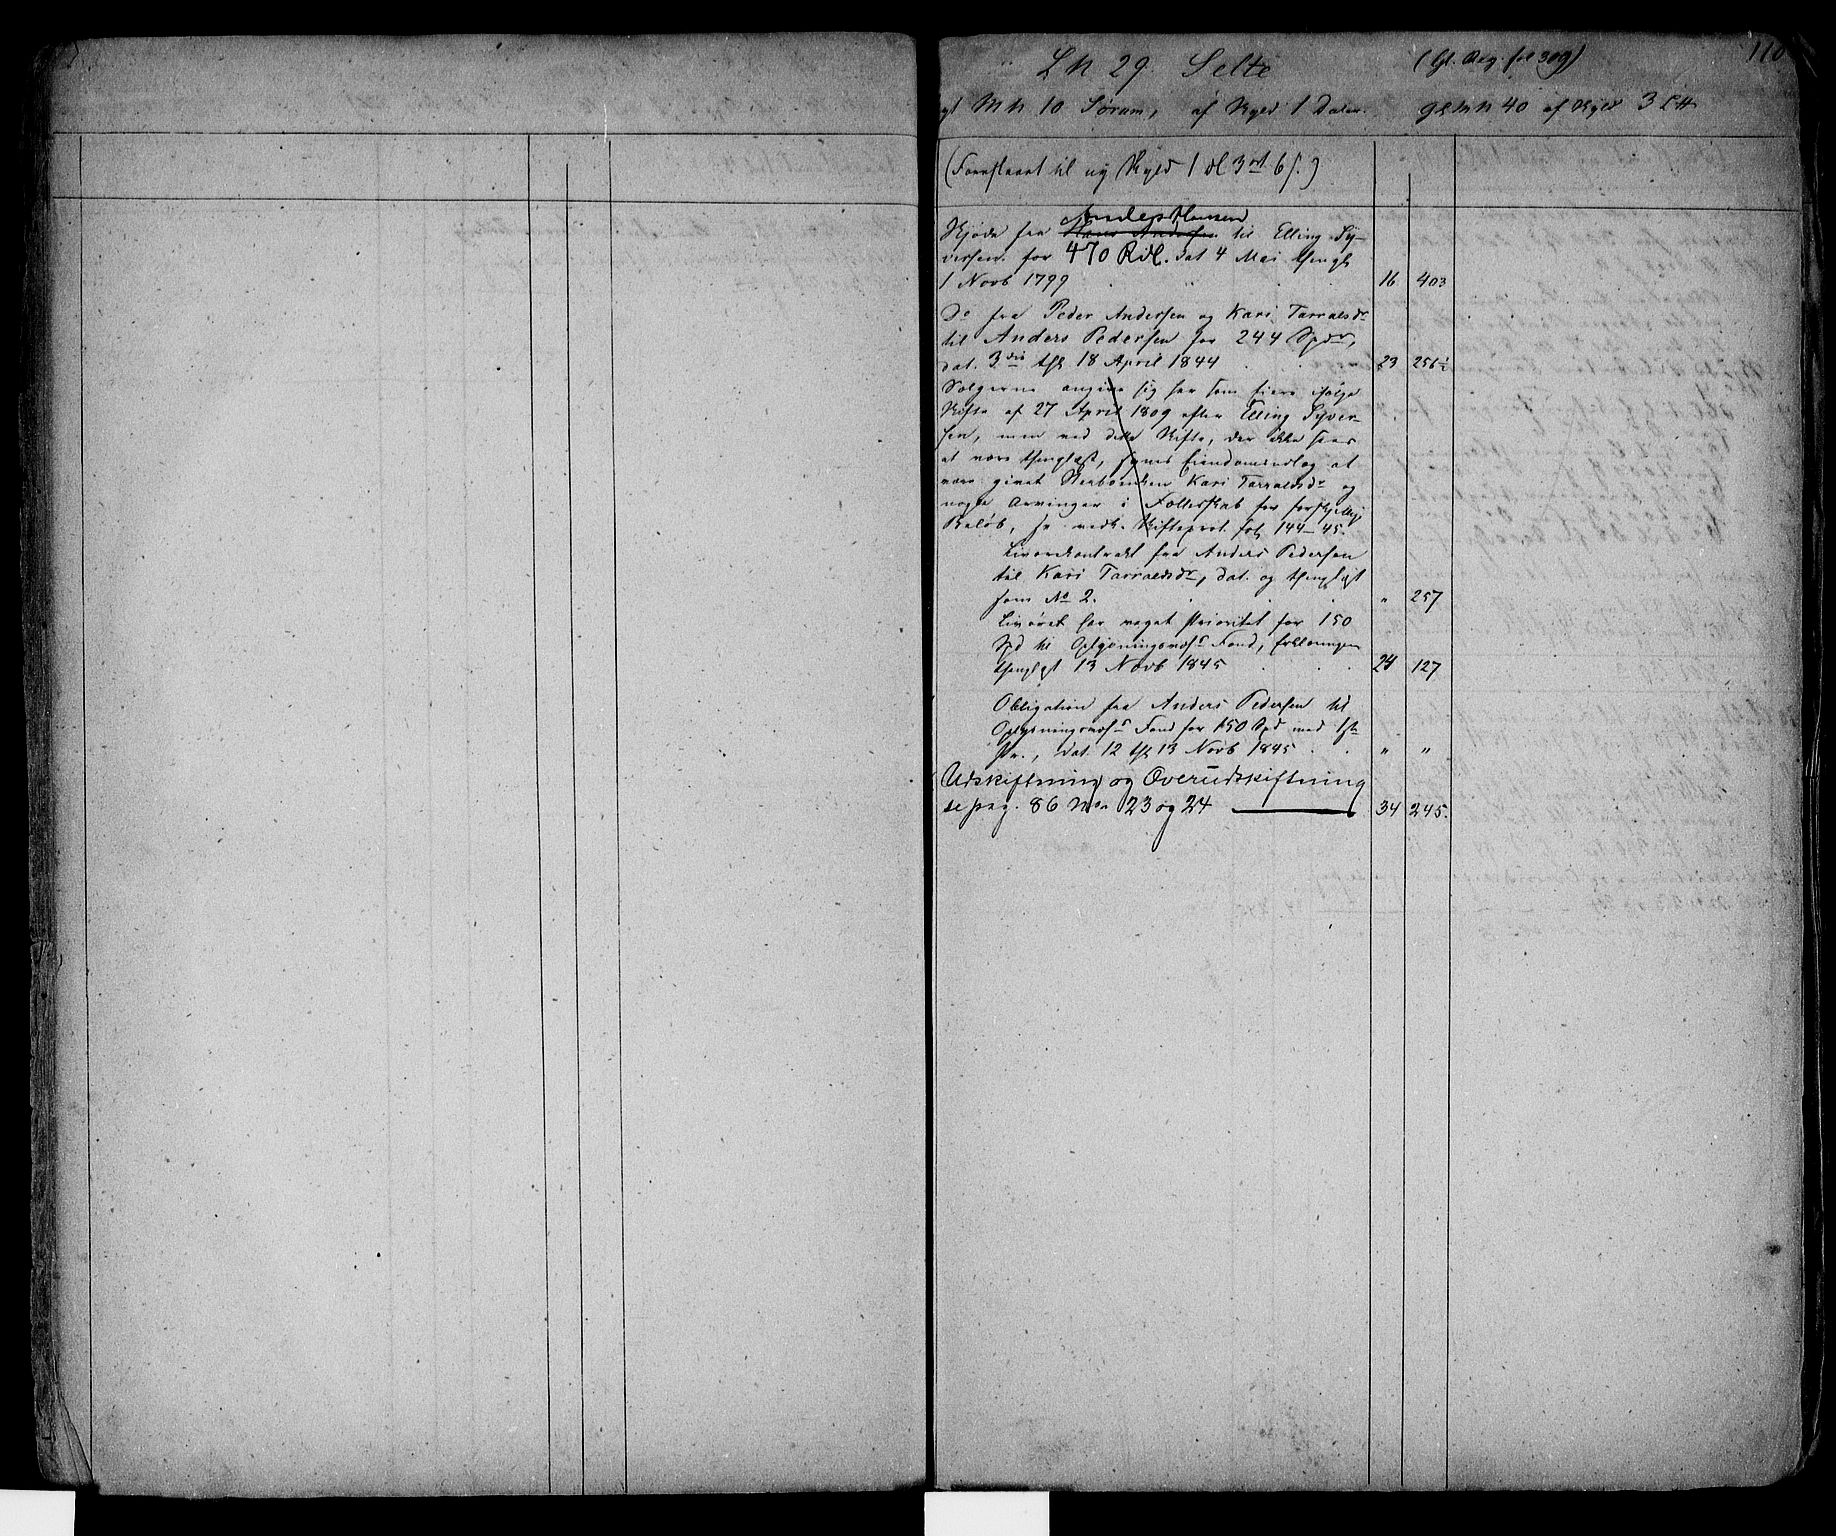 110
L N 29. Selte (Gl. Reg. fol 309)
gl M N 10 Sørum, af Skyld 1 Daler. gl M N 40 af Skyld 3 L℔
(Foreslaaet til ny Skyld 1 dl 3 ort 6 s.)
Anders Hansen
Skjøde fra Hans Andersen til Elling Sy-
versen for 470 Rdl. dat 4 Mai thingl.
1 Novb 1799 16 403
Do fra Peder Andersen og Kari Tarraldsdr
til Anders Pedersen for 244 Spdr,
dat. 3die thl 18 April 1844 23 256½
Sælgerne angive sig her som Eiere ifølge
Skifte af 27 April 1809 efter Elling Syver-
sen, men ved dette Skifte, der ikke sees
at være thinglæst, synes Eiendomsudlæg at
være givet Stervboenken Kari Tarraldsdr og
nogle Arvinger i Fællesskab for forskjellige
Beløb, se vedk. Skifteprot. fol 144-45.
Livørekontrakt fra Anders Pedersen
til Kari Tarraldsdr, dat. og thinglyst
som No 2. " 257
Livøret har veget Prioritet for 150
Spd til Oplysningsvæs. Fond, Erklæringen
thinglyst 13 Novb 1845 24 127
Obligation fra Anders Pedersen til
Oplysningsvæs. Fond for 150 Spd med 1ste
Pr., dat. 12 thl 13 Novb 1845 " "
Udskiftning og Overudskiftning
se pag. 86 No 23 og 24 34 245.